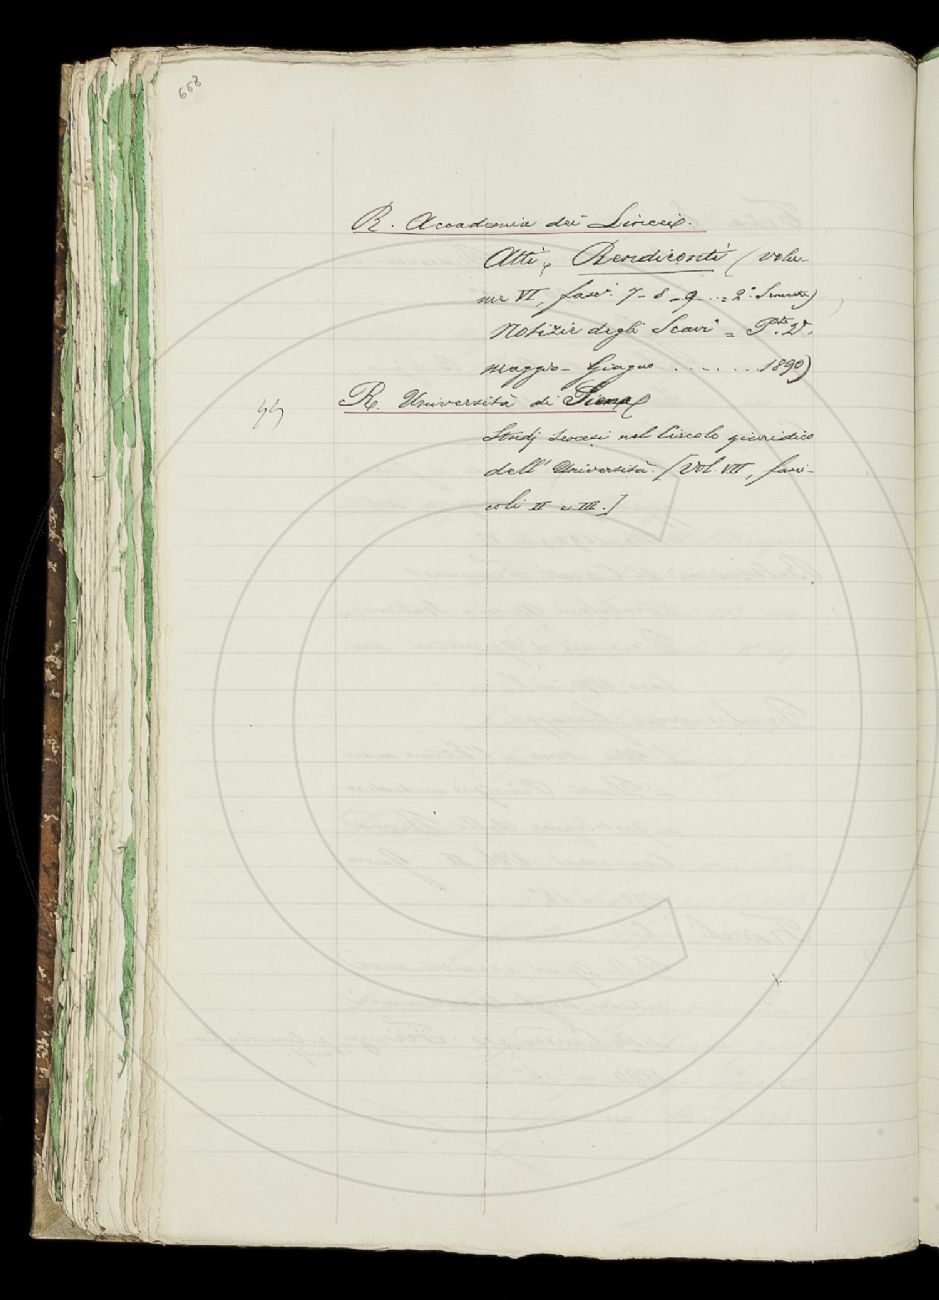 668
R. Accademia dei Lincei.
Atti, Rendiconti (volu-
me VI, fasci. 7-8-9... = 2°. Semestre)
Notizie degli Scavi = P.te 2ª.
maggio - Giugno ...... 1890)
R. Università di Siena
Studj Senesi nel Circolo giuridico
dell' Università. [Vol. VII, fasci-
coli II e III.]